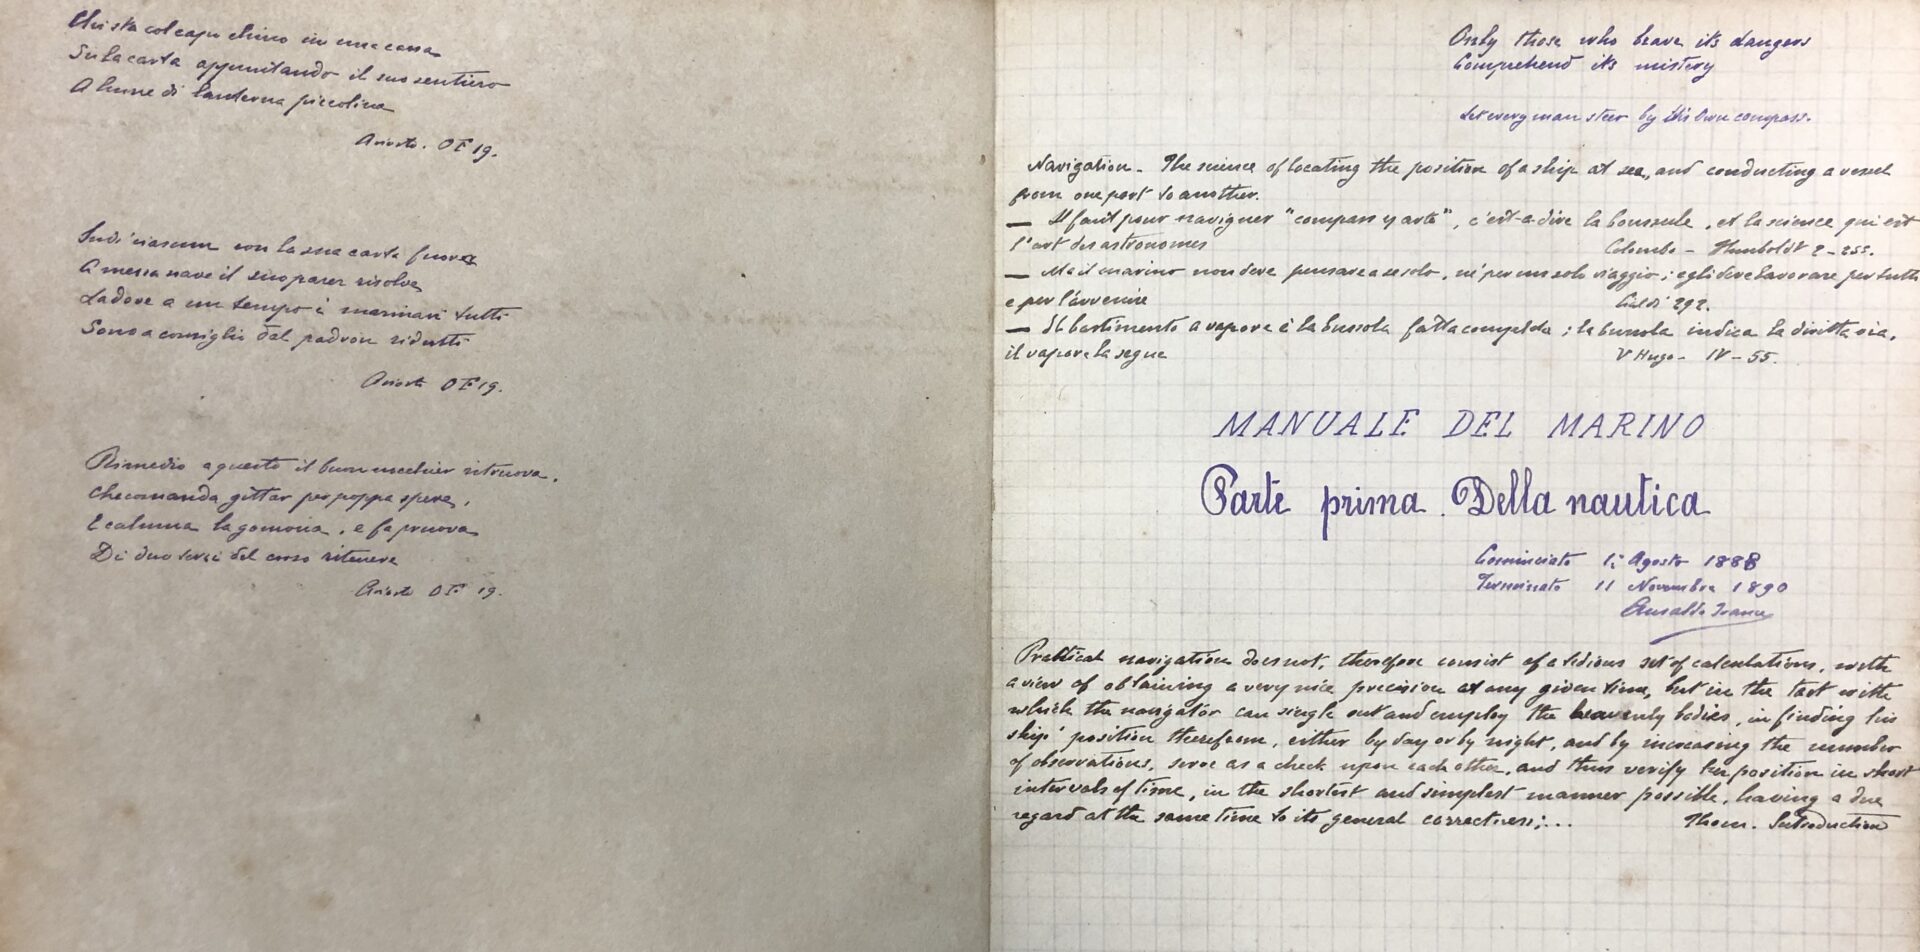 Chi sta col capo chino in una cassa
Su la carta appuntando il suo sentiero
A lume di lanterna piccolina
Ariosto. O F 19.
Indi ciascun con la sua carta fuora
A mezza nave il suo parer risolve
Ladove a un tempo i marinari tutti
Sono a consiglio dal padron ridutti
Ariosto O F 19.
Rimedio a questo il buon nocchier ritruova.
Che comanda gittar per poppa spere,
E caluma la gomona, e fa pruova
Di duo terzi del corso ritenere
Ariosto O F. 19.
Only those who brave its dangers
Comprehend its mistery
Let every man steer by his own compass.
Navigation - The science of locating the position of a ship at sea, and conducting a vessel
from one port to another.
— Il faut pour naviguer "compass y arte", c'est-a-dire la boussole, et la science qui est
l'art des astronomes
Colombo - Humboldt 2-255.
— Ma il marino non deve pensare a se solo, né per un solo viaggio; egli deve lavorare per tutti
e per l'avvenire
Cialdi 292.
— Il bastimento a vapore è la bussola fatta completa; la bussola indica la diritta via,
il vapore la segue
V Hugo - IV - 55.
MANUALE DEL MARINO
Parte prima. Della nautica
Cominciato 1: Agosto 1888
Terminato 11 Novembre 1890
Ansaldo
Prattical navigation does not, therefore consist of a tedious set of calculations, with
a view of obtaining a very nice precision at any given time, but in the tact with
which the navigator can single out and employ the heavenly bodies, in finding his
ship' position therefrom, either by day or by night, and by increasing the number
of observations, serve as a check upon each other, and thus verify her position in short
intervals of time, in the shortest and simplest manner possible, having a due
regard at the same time to its general correctness;...
Thom. Introduction